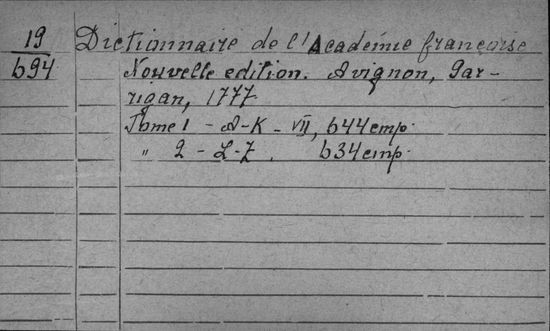 19 Dictionnaire de l'Académie françarse
694 Nouvelle edition. Avignon, Gar-
rigan, 1777
Tome 1 - A-K - VII, 644 cmp.
" 2 - L-Z. 634 cmp.